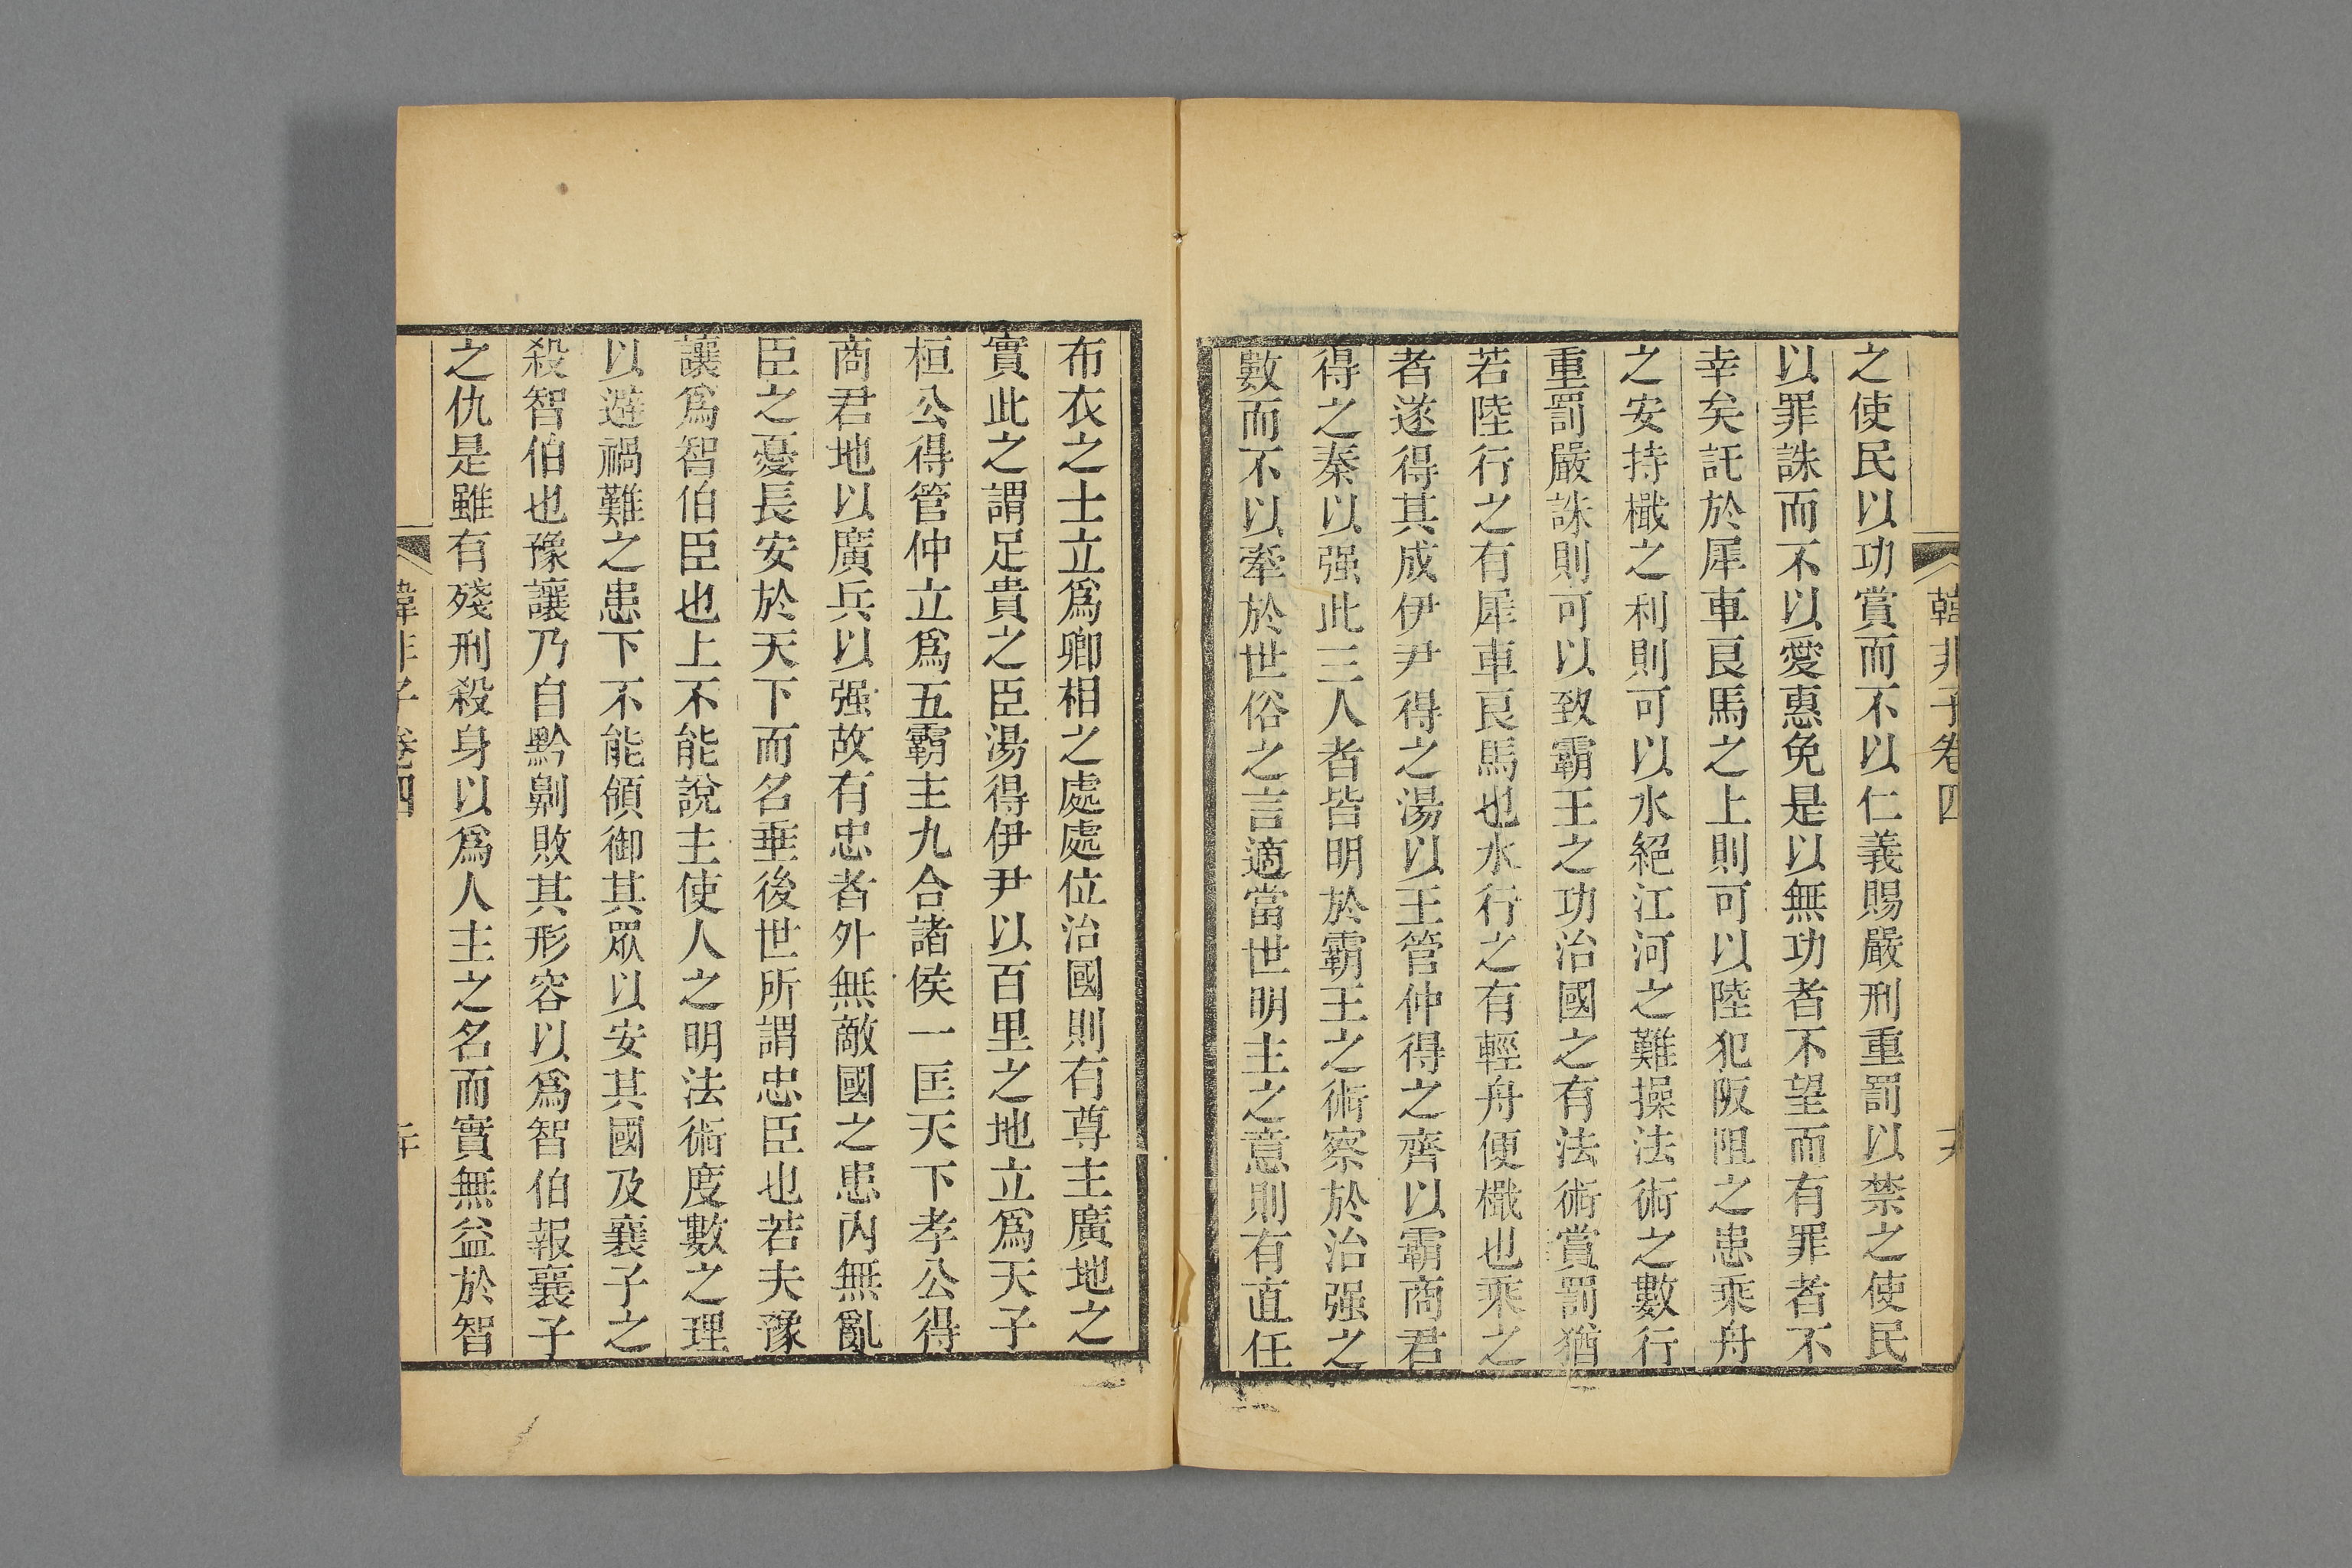 韓非子卷四
之使民以功賞而不以仁義賜嚴刑重罰以禁之使民
以罪誅而不以愛惠免是以無功者不望而有罪者不
幸矣託於犀車良馬之上則可以陸犯阪阻之患乘舟
之安持檝之利則可以水絕江河之難操法術之數行
重罰嚴誅則可以致霸王之功治國之有法術賞罰猶
若陸行之有犀車良馬也水行之有輕舟便檝也乘之
者遂得其成伊尹得之湯以王管仲得之齊以霸商君
得之秦以强此三人者皆明於霸王之術察於治强之
數而不以牽於世俗之言適當世明主之意則有直任
布衣之士立爲卿相之處處位治國則有尊主廣地之
實此之謂足貴之臣湯得伊尹以百里之地立爲天子
桓公得管仲立爲五霸主九合諸侯一匡天下孝公得
商君地以廣兵以强故有忠者外無敵國之患內無亂
臣之憂長安於天下而名垂後世所謂忠臣也若夫豫
讓爲智伯臣也上不能說主使人之明法術度數之理
以避禍難之患下不能領御其眾以安其國及襄子之
殺智伯也豫讓乃自黔劓敗其形容以爲智伯報襄子
之仇是雖有殘刑殺身以爲人主之名而實無益於智
韓非子卷四